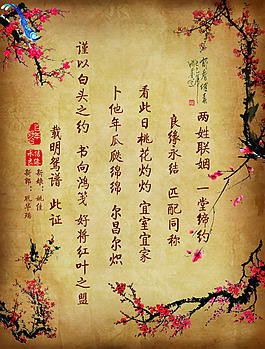 两姓联姻 一堂缔约
良缘永结 匹配同称
看此日桃花灼灼 宜室宜家
卜他年瓜瓞绵绵 尔昌尔炽
谨以白头之约 书向鸿笺 好将红叶之盟
载明鸳谱 此证
新娘：
新郎：